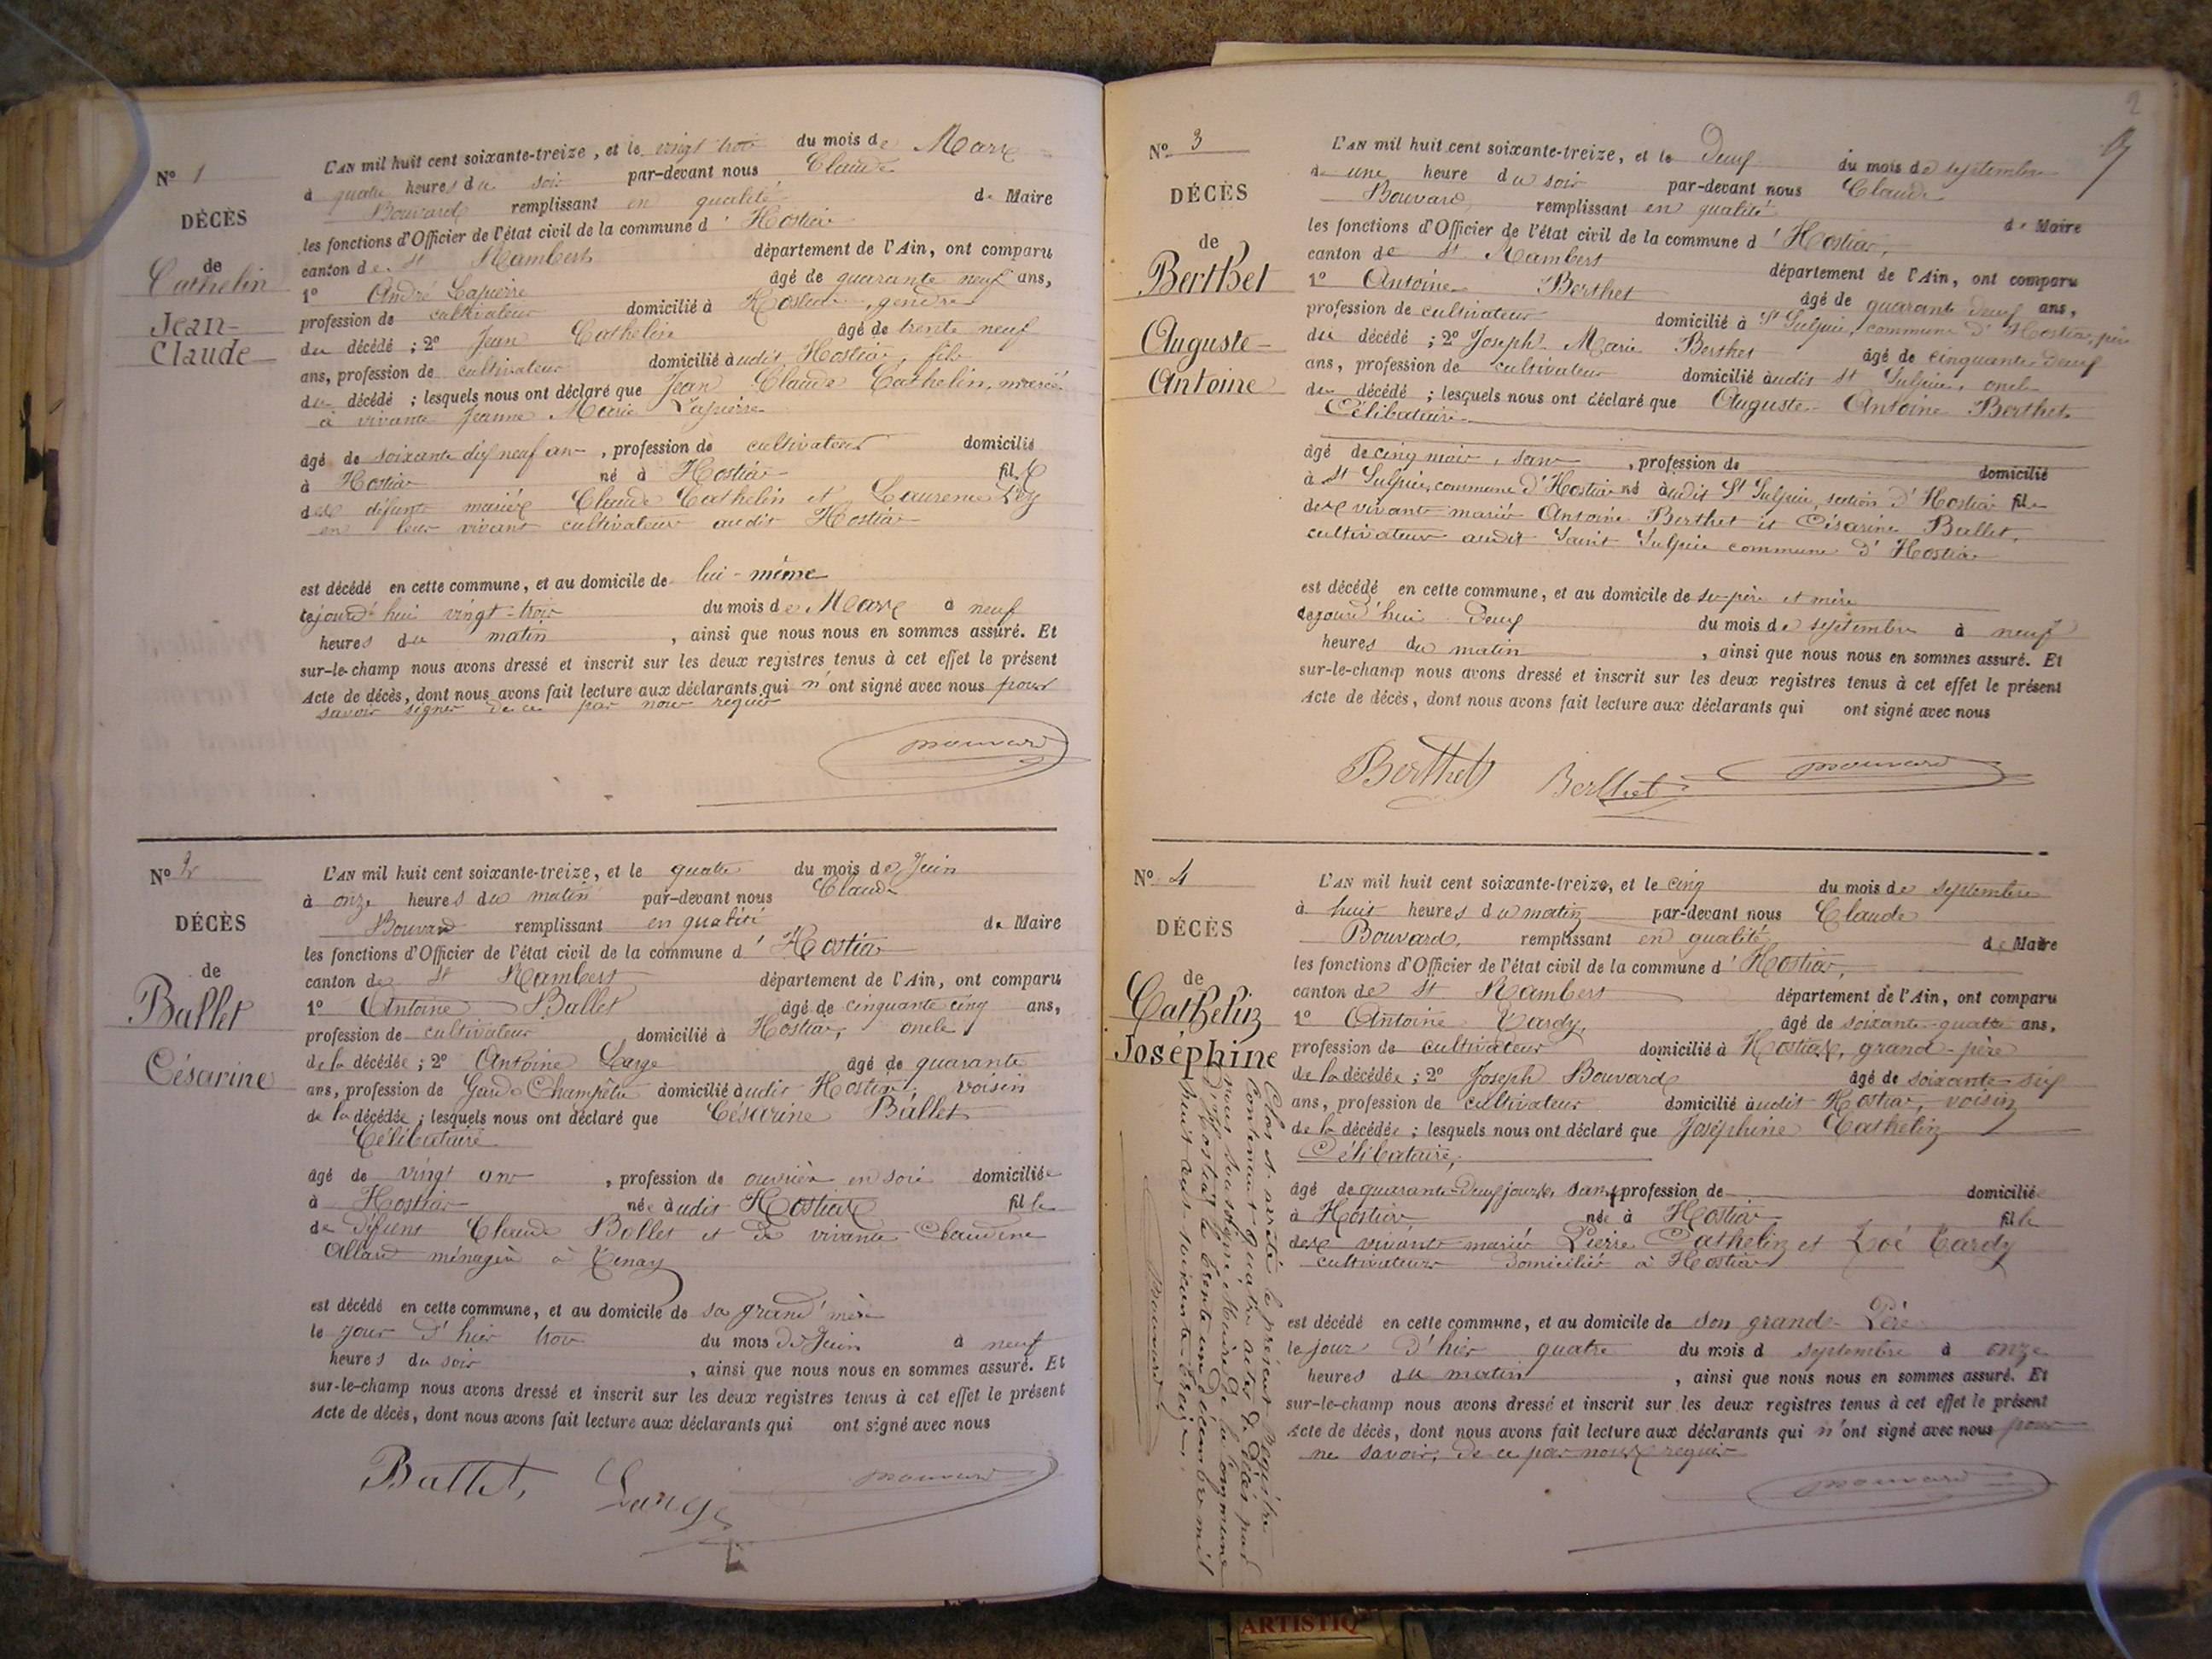 N° 1
DÉCÈS
de
Cathelin
Jean-
Claude
L'AN mil huit cent soixante-treize, et le vingt trois du mois de Mars
à quatre heures du soir par-devant nous Claude
Bouvard remplissant en qualité de Maire
les fonctions d'Officier de l'état civil de la commune d'Hostias
canton de St Rambert département de l'Ain, ont comparu
1° André Lapierre âgé de quarante neuf ans,
profession de cultivateur domicilié à Hostias, gendre
du décédé ; 2° Jean Cathelin âgé de trente neuf
ans, profession de cultivateur domicilié audit Hostias, fils
du décédé ; lesquels nous ont déclaré que Jean Claude Cathelin, marié
à vivante Jeanne Marie Lapierre
âgé de soixante dix neuf ans, profession de cultivateur domicilié
à Hostias né à Hostias fils
des défunts mariés Claude Cathelin et Laurence
en leur vivant cultivateurs audit Hostias
est décédé en cette commune, et au domicile de lui-même
cejourd'hui vingt-trois du mois de Mars à neuf
heures du matin, ainsi que nous nous en sommes assuré. Et
sur-le-champ nous avons dressé et inscrit sur les deux registres tenus à cet effet le présent
Acte de décès, dont nous avons fait lecture aux déclarants qui n'ont signé avec nous pour
savoir signer de ce par nous requis
Bouvard
N° 2
DÉCÈS
de
Ballet
Césarine
L'AN mil huit cent soixante-treize, et le quatre du mois de Juin
à onze heures du matin par-devant nous Claude
Bouvard remplissant en qualité de Maire
les fonctions d'Officier de l'état civil de la commune d'Hostias
canton de St Rambert département de l'Ain, ont comparu
1° Antoine Ballet âgé de cinquante cinq ans,
profession de cultivateur domicilié à Hostias, oncle
de la décédée ; 2° Antoine Large âgé de quarante
ans, profession de Garde Champêtre domicilié audit Hostias, voisin
de la décédée ; lesquels nous ont déclaré que Césarine Ballet
Célibataire
âgé de vingt ans, profession de ouvrière en soie domiciliée
à Hostias née audit Hostias fille
de défunt Claude Ballet et de vivante Claudine
Allard ménagère à Tenay
est décédé en cette commune, et au domicile de sa grand'mère
le jour d'hier trois du mois de Juin à neuf
heures du soir, ainsi que nous nous en sommes assuré. Et
sur-le-champ nous avons dressé et inscrit sur les deux registres tenus à cet effet le présent
Acte de décès, dont nous avons fait lecture aux déclarants qui ont signé avec nous
Ballet Large Bouvard
2
N° 3
DÉCÈS
de
Berthet
Auguste-
Antoine
L'AN mil huit cent soixante-treize, et le Deux du mois de septembre
à une heure du soir par-devant nous Claude
Bouvard remplissant en qualité de Maire
les fonctions d'Officier de l'état civil de la commune d'Hostias,
canton de St Rambert département de l'Ain, ont comparu
1° Antoine Berthet âgé de quarante deux ans,
profession de cultivateur domicilié à St Sulpice, commune d'Hostias, père
du décédé ; 2° Joseph Marie Berthet âgé de cinquante deux
ans, profession de cultivateur domicilié audit St Sulpice, oncle
du décédé ; lesquels nous ont déclaré que Auguste Antoine Berthet
Célibataire
âgé de cinq mois, sans, profession de domicilié
à St Sulpice, commune d'Hostias né audit St Sulpice, section d'Hostias fils
des vivants mariés Antoine Berthet et Césarine Ballet,
cultivateurs audit Saint Sulpice commune d'Hostias
est décédé en cette commune, et au domicile de ses père et mère
cejourd'hui Deux du mois de septembre à neuf
heures du matin, ainsi que nous nous en sommes assuré. Et
sur-le-champ nous avons dressé et inscrit sur les deux registres tenus à cet effet le présent
Acte de décès, dont nous avons fait lecture aux déclarants qui ont signé avec nous
Berthet Berthet Bouvard
N° 4
DÉCÈS
de
Cathelin
Joséphine
L'AN mil huit cent soixante-treize, et le cinq du mois de septembre
à huit heures du matin par-devant nous Claude
Bouvard, remplissant en qualité de Maire
les fonctions d'Officier de l'état civil de la commune d'Hostias,
canton de St Rambert département de l'Ain, ont comparu
1° Antoine Tardy, âgé de soixante-quatre ans,
profession de cultivateur domicilié à Hostias, grand-père
de la décédée ; 2° Joseph Bouvard âgé de soixante-six
ans, profession de cultivateur domicilié audit Hostias, voisin
de la décédée ; lesquels nous ont déclaré que Joséphine Cathelin
Célibataire,
âgé de quarante-deux jours, sans profession de domiciliée
à Hostias née à Hostias fille
des vivants mariés Pierre Cathelin et Zoé Tardy
cultivateurs domiciliés à Hostias
est décédé en cette commune, et au domicile de son grand-Père
le jour d'hier quatre du mois d septembre à onze
heures du matin, ainsi que nous nous en sommes assuré. Et
sur-le-champ nous avons dressé et inscrit sur les deux registres tenus à cet effet le présent
Acte de décès, dont nous avons fait lecture aux déclarants qui n'ont signé avec nous pour
ne savoir, de ce par nous requis
Bouvard
Clos et arrêté le présent Registre
contenant quatre actes de Décès par
nous soussigné Maire de la commune
d'Hostias le trente un décembre mil
huit cent soixante-treize.
Bouvard
ARTISTIQ